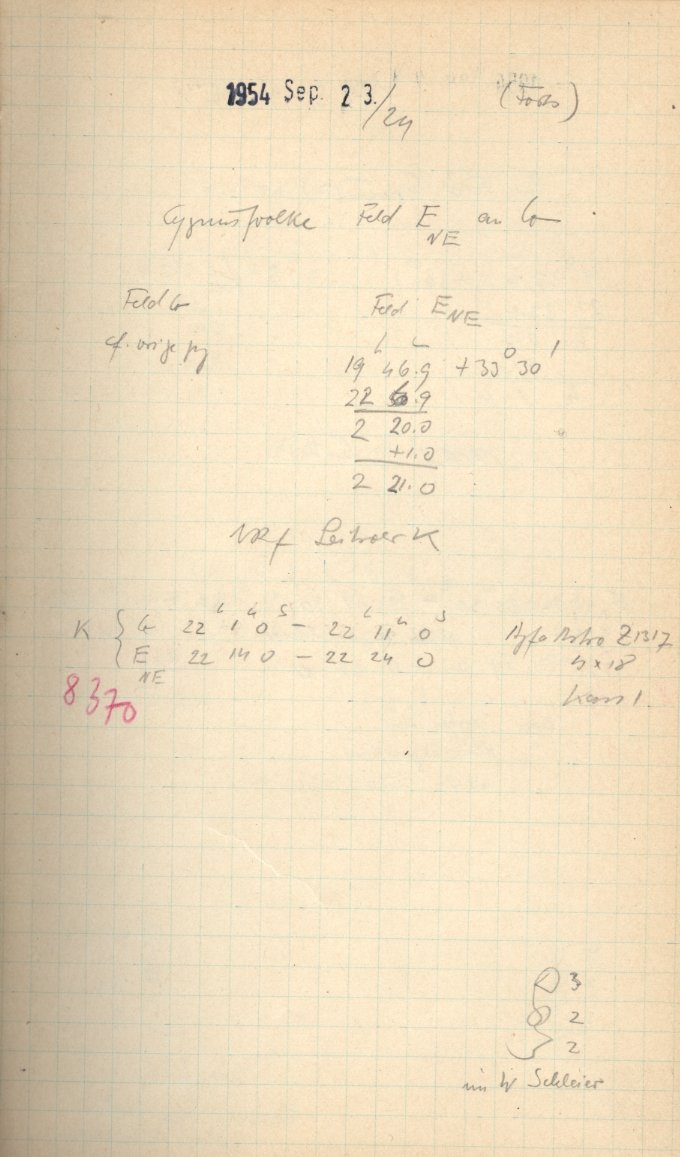 1954 Sep. 23./24 (Forts)
Cygnuswolke Feld E NE an G
Feld G Feld E NE
cf. vorige pg
19 h 46.9 m +33° 30'
22 6.9
2 20.0
+1.0
2 21.0
K { G 22 h 1 m 0 s – 22 h 11 m 0 s Agfa Astro Z1317
E NE 22 14 0 – 22 24 0 9 x 18
8370
Kass 1.
3
2
2
im W Schleier